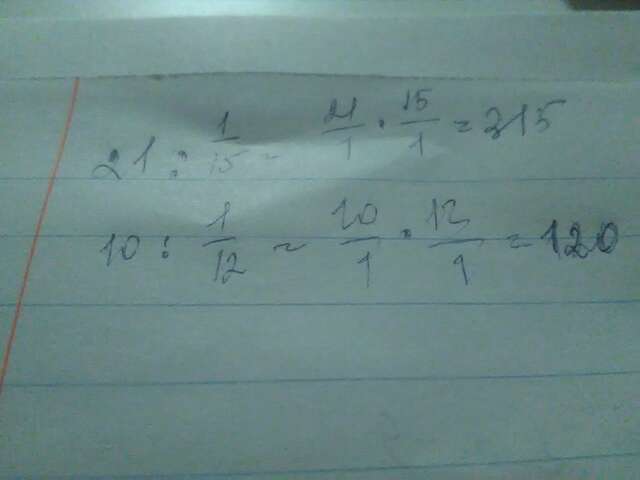 21 : 1/15 = 21/1 · 15/1 = 315
10 : 1/12 = 10/1 · 12/1 = 120